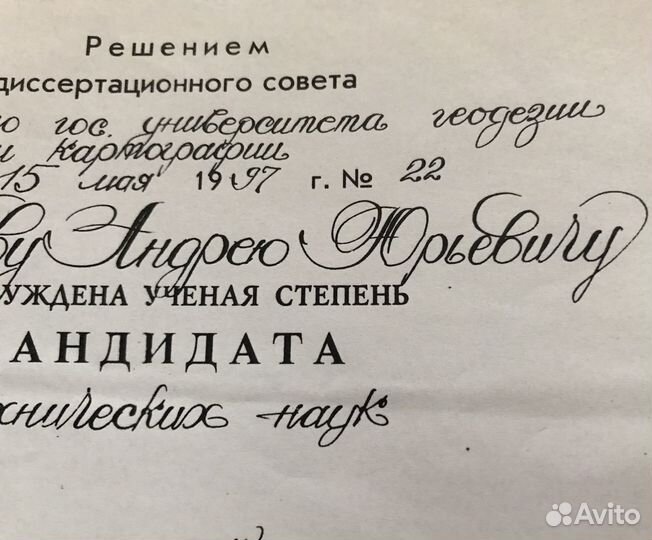 Решением
диссертационного совета
го гос. университета геодезии
и картографии
15 мая 1997 г. № 22
ву Андрею Юрьевичу
УЖДЕНА УЧЕНАЯ СТЕПЕНЬ
АНДИДАТА
хнических наук
Avito